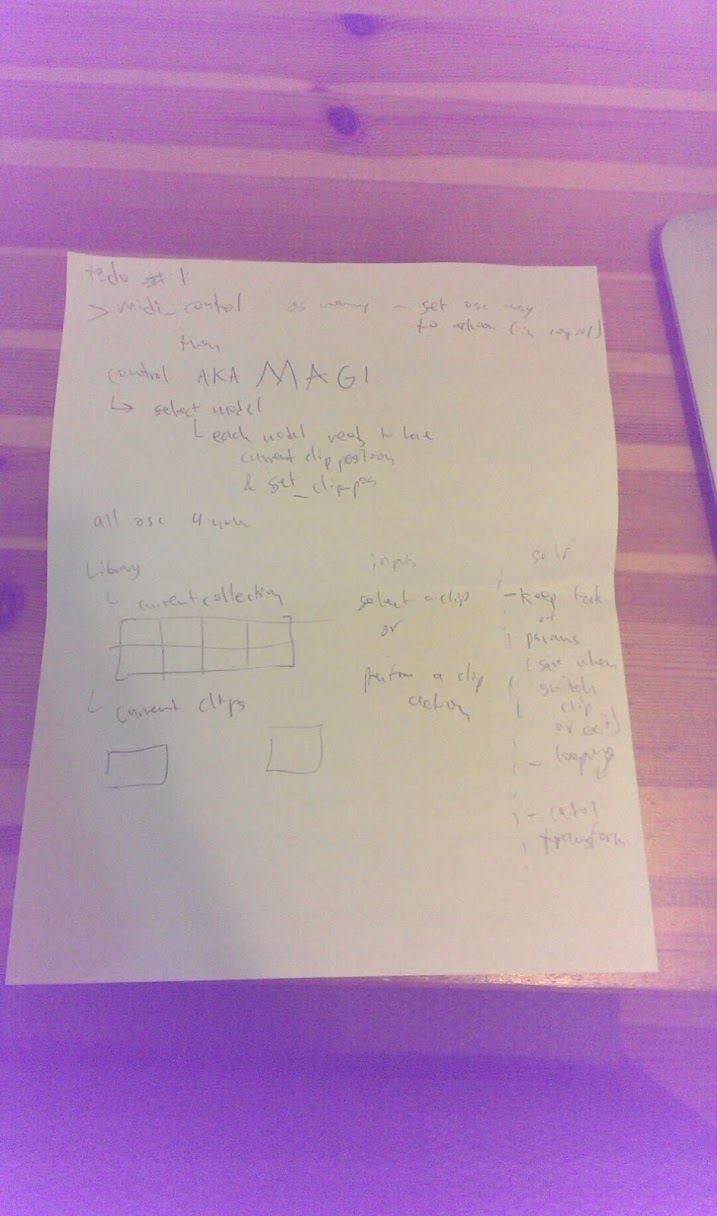 todo # 1
> midi_control as - set osc key
to action (in
then
control AKA MAGI
select model
each model needs to have
current clip position
& set_clip_pos
all osc 4 now
Library
current collection
current clips
inputs
select a clip
or
perform a clip
action
self
- keep track
of
params
(save when
switch
clip
or exit)
- looping
- control